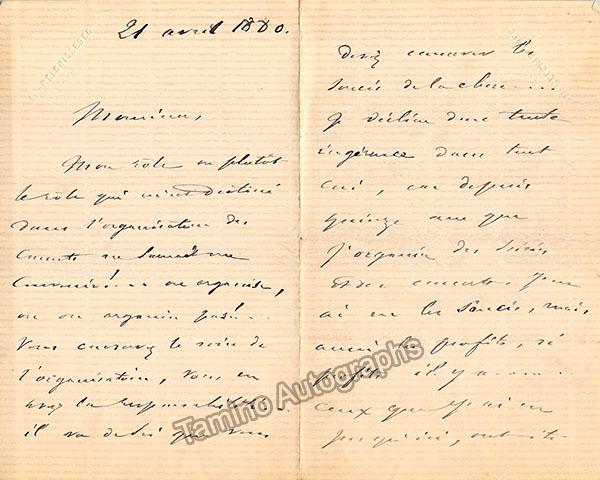 21 avril 1880.
Monsieur,
Mon rôle ou plutôt
le rôle qui m'est destiné
dans l'organisation des
concerts du
... on organise,
ou on organise pas!...
Vous conservez le soin de
l'organisation, vous en
avez la responsabilité..
il va de soi que vous
devez conserver les
soucis de la chose....
Je décline donc toute
ingérence dans tout
ceci, car depuis
quinze ans que
j'organise des soirées
et des concerts, j'en
ai eu les soucis, mais
aussi les profits, si
profits il y a......
ceux que j'ai eu
jusqu'ici, ont été
Tamino Autographs